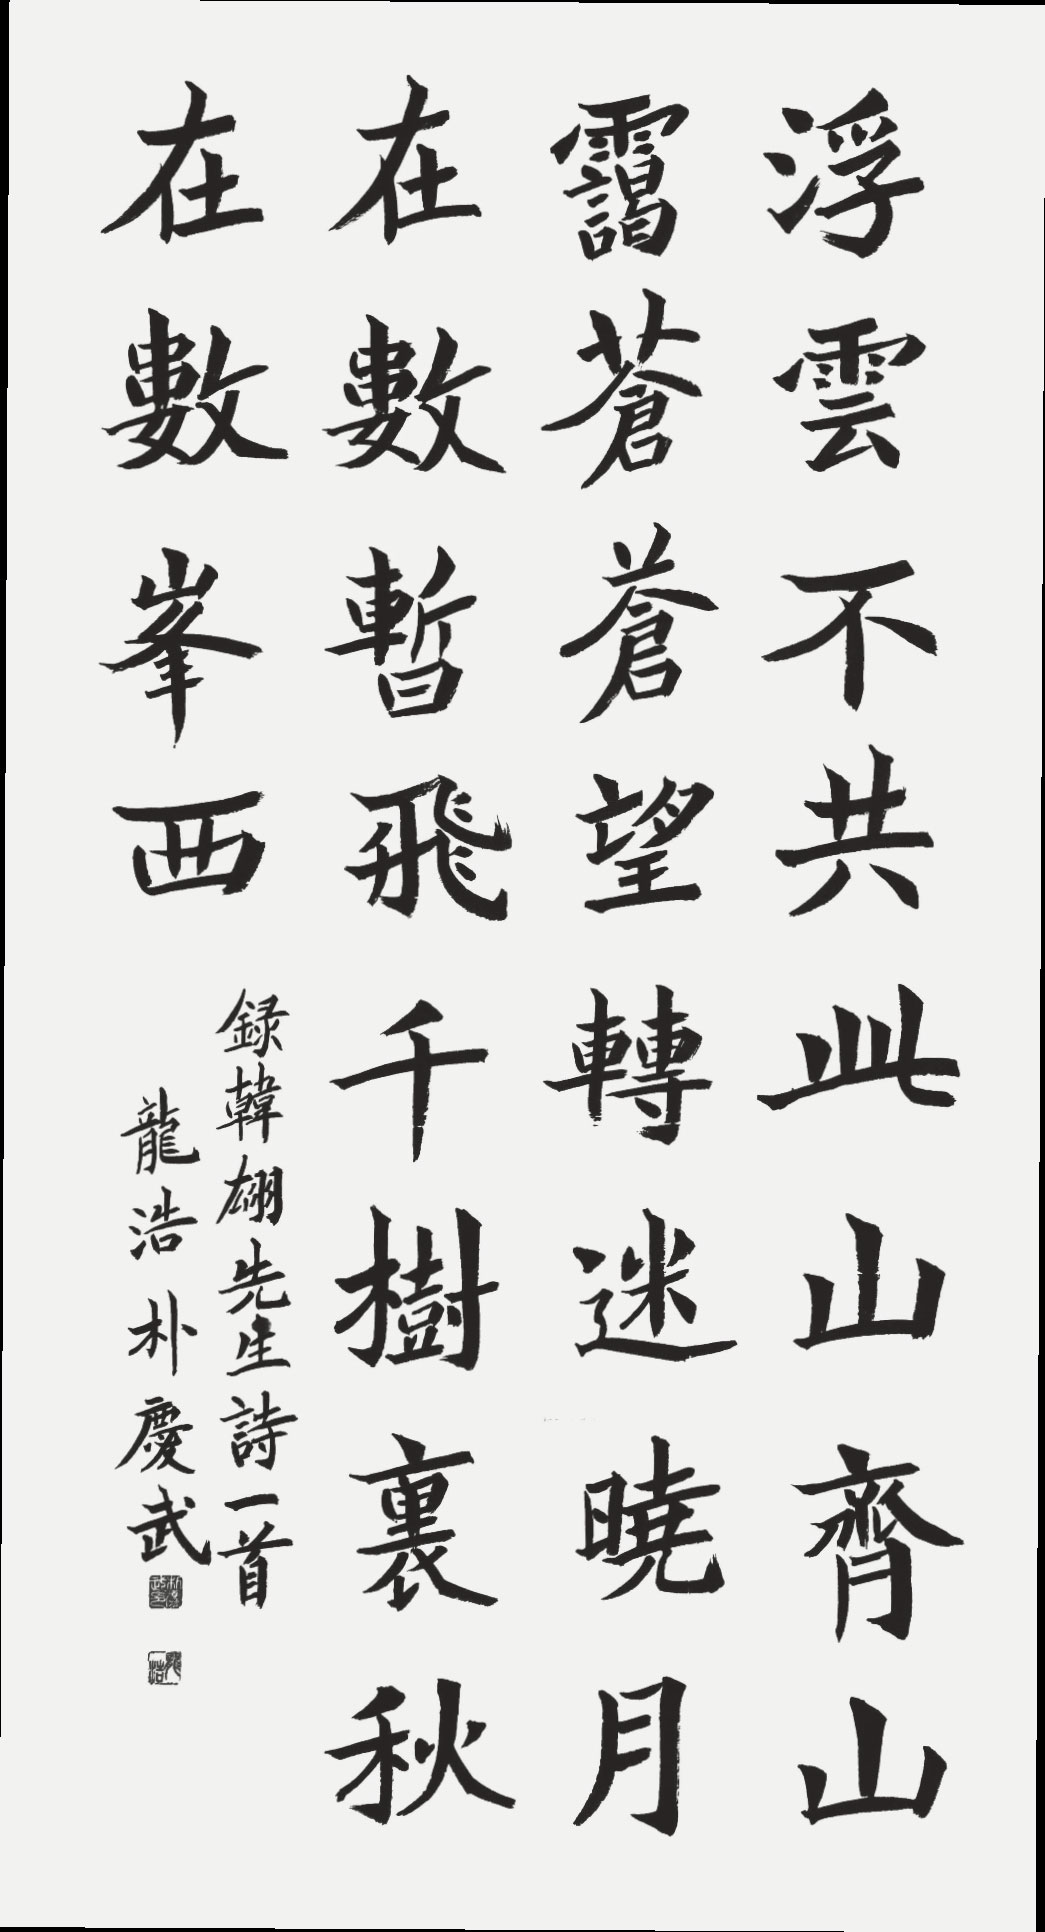 浮雲不共此山齊山
靄蒼蒼望轉迷曉月
在數暫飛千樹裏秋
在數峯西
錄韓翃先生詩一首
龍浩朴慶武